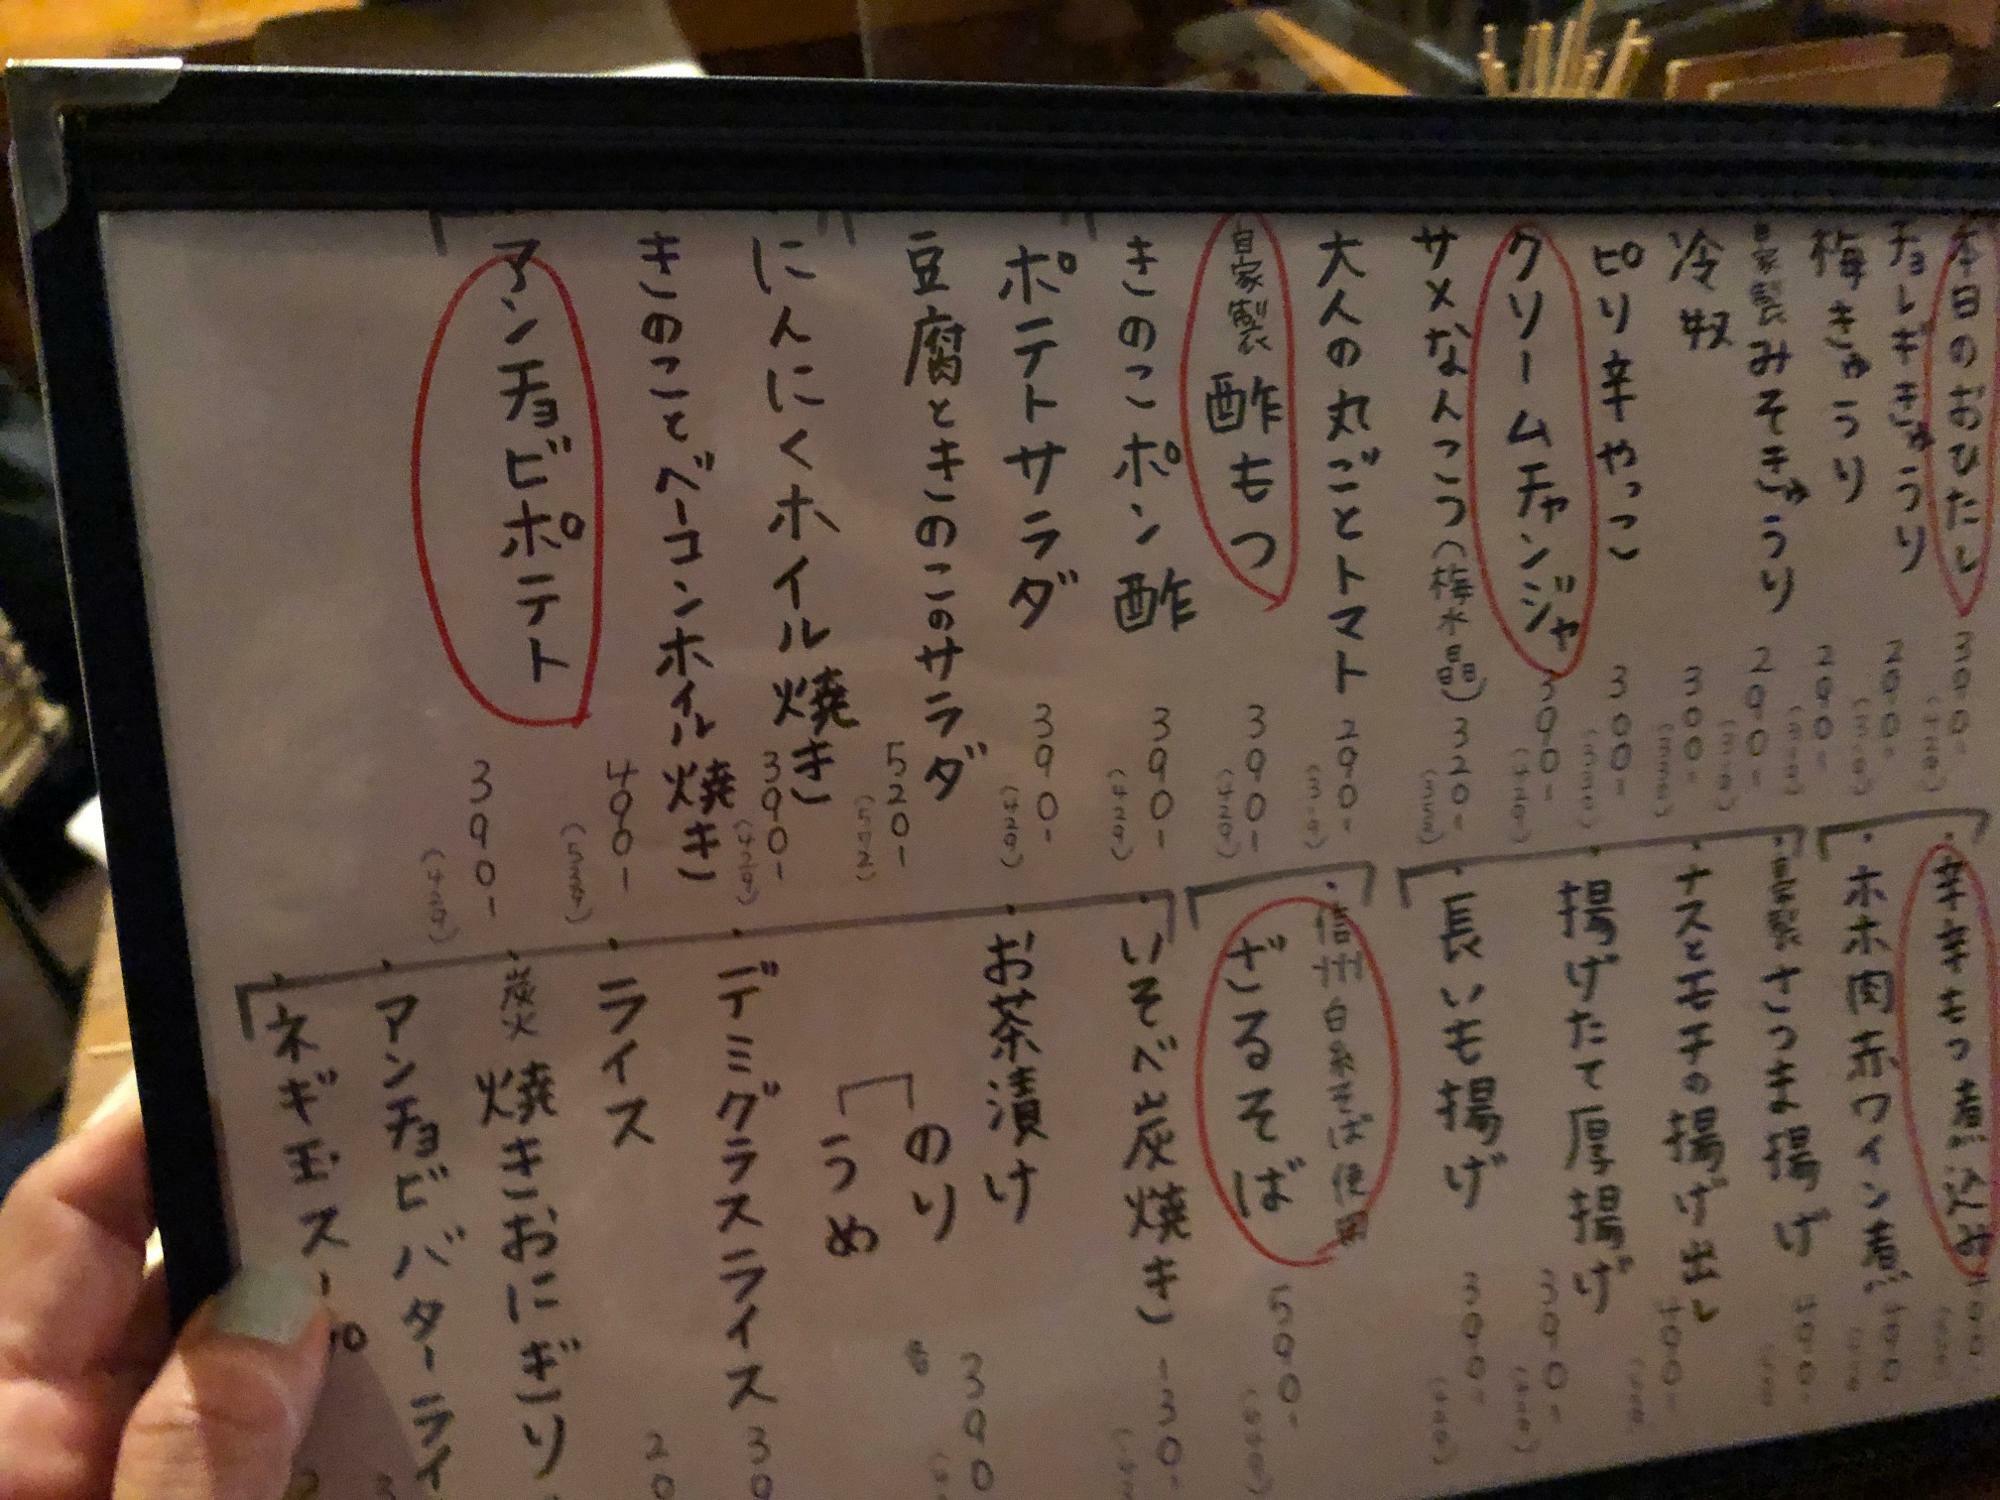 本日のおひたし 390-
(429)
チョレギきゅうり 290-
(319)
梅きゅうり 290-
(319)
自家製みそきゅうり 290-
(319)
冷奴 300-
(330)
ピリ辛やっこ 300-
(330)
クリームチャンジャ 390-
(429)
サメなんこつ(梅水晶) 320-
(352)
大人の丸ごとトマト 290-
(319)
自家製 酢もつ 390-
(429)
きのこポン酢 390-
(429)
ポテトサラダ 390-
(429)
豆腐ときのこのサラダ 520-
(572)
にんにくホイル焼き 390-
(429)
きのことベーコンホイル焼き 490-
(539)
アンチョビポテト 390-
(429)
・辛辛もつ煮込み 490-
・ホホ肉赤ワイン煮 490
・自家製さつま揚げ 490-
・ナスとモチの揚げ出し 490-
・揚げたて厚揚げ 390-
(429)
・長いも揚げ 390-
(429)
・信州白糸そば使用
ざるそば 590-
(649)
・いそべ炭焼き 130-
・お茶漬け
のり
うめ
各 390
・デミグラスライス 39
・ライス 20
・炭火 焼きおにぎり
・アンチョビバターライ 3
・ネギ玉スープ 2